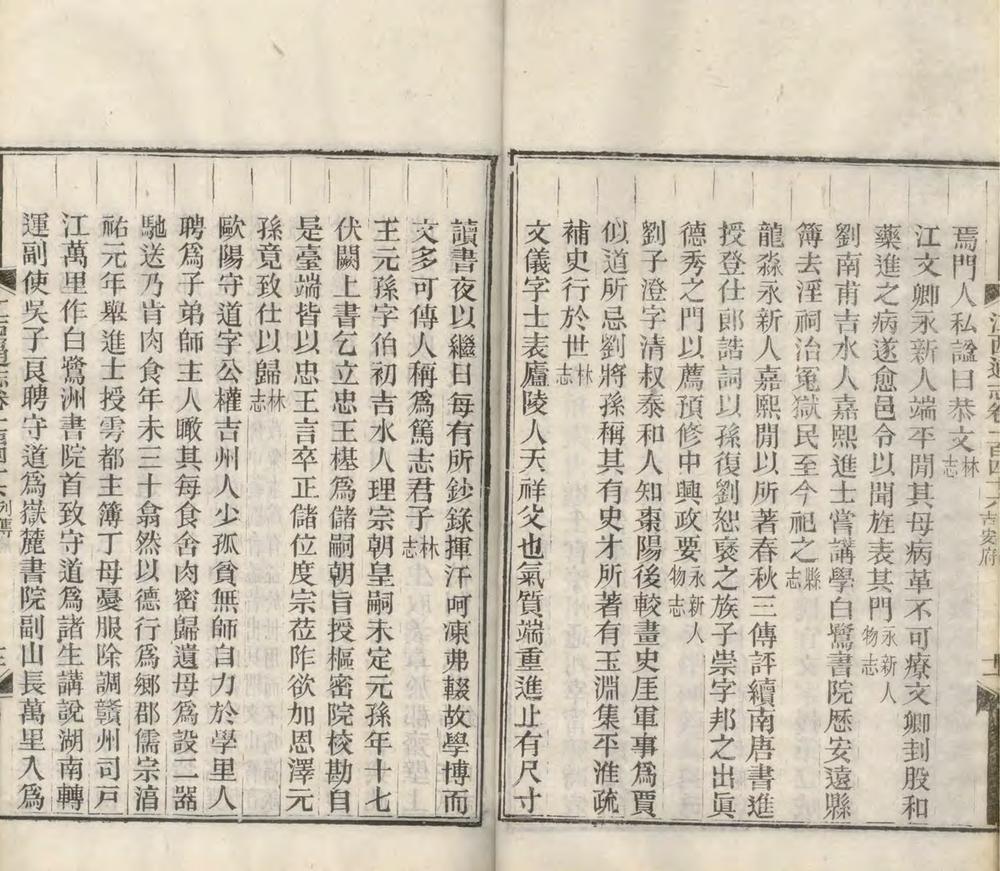 江西通志卷一百四十六吉安府
十一
焉門人私諡曰恭文林志
江文卿永新人端平閒其母病革不可療文卿刲股和
藥進之病遂愈邑令以聞旌表其門永新人物志
劉南甫吉水人嘉熙進士嘗講學白鷺書院歷安遠縣
簿去淫祠治冤獄民至今祀之縣志
龍淼永新人嘉熙閒以所著春秋三傳評續南唐書進
授登仕郎誥詞以孫復劉恕褒之族子崇字邦之出眞
德秀之門以薦預修中興政要永新人物志
劉子澄字清叔泰和人知棗陽後較畫史厓軍事爲賈
似道所忌劉將孫稱其有史才所著有玉淵集平淮疏
補史行於世林志
文儀字士表廬陵人天祥父也氣質端重進止有尺寸
讀書夜以繼日每有所鈔錄揮汗呵凍弗輟故學博而
文多可傳人稱爲篤志君子林志
王元孫字伯初吉水人理宗朝皇嗣未定元孫年十七
伏闕上書乞立忠王禥爲儲嗣朝旨授樞密院校勘自
是臺端皆以忠王言卒正儲位度宗莅阼欲加恩澤元
孫竟致仕以歸林志
歐陽守道字公權吉州人少孤貧無師自力於學里人
聘爲子弟師主人瞰其每食舍肉密歸遺母爲設二器
馳送乃肯肉食年未三十翕然以德行爲鄉郡儒宗淳
祐元年舉進士授雩都主簿丁母憂服除調贛州司戸
江萬里作白鷺洲書院首致守道爲諸生講說湖南轉
運副使吳子良聘守道爲嶽麓書院副山長萬里入爲
列傳